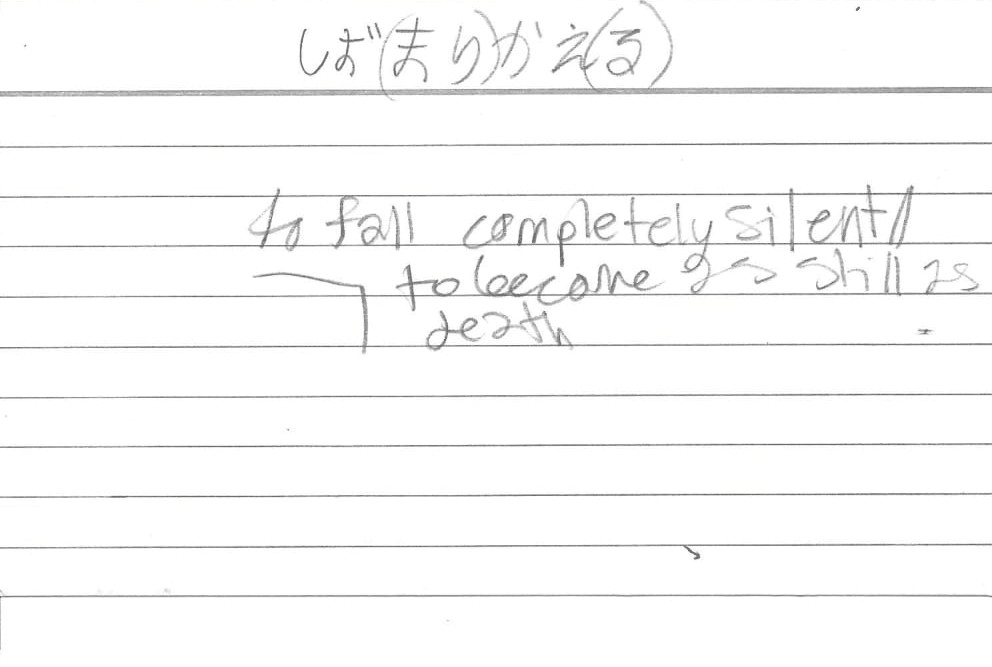 しず(まり)かえ(る)
to fall completely silent/
to become as still as
death